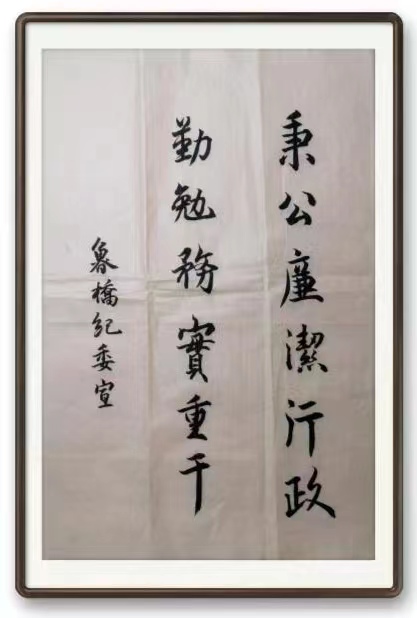 秉公廉潔行政
勤勉務實重干
魯橋紀委宣